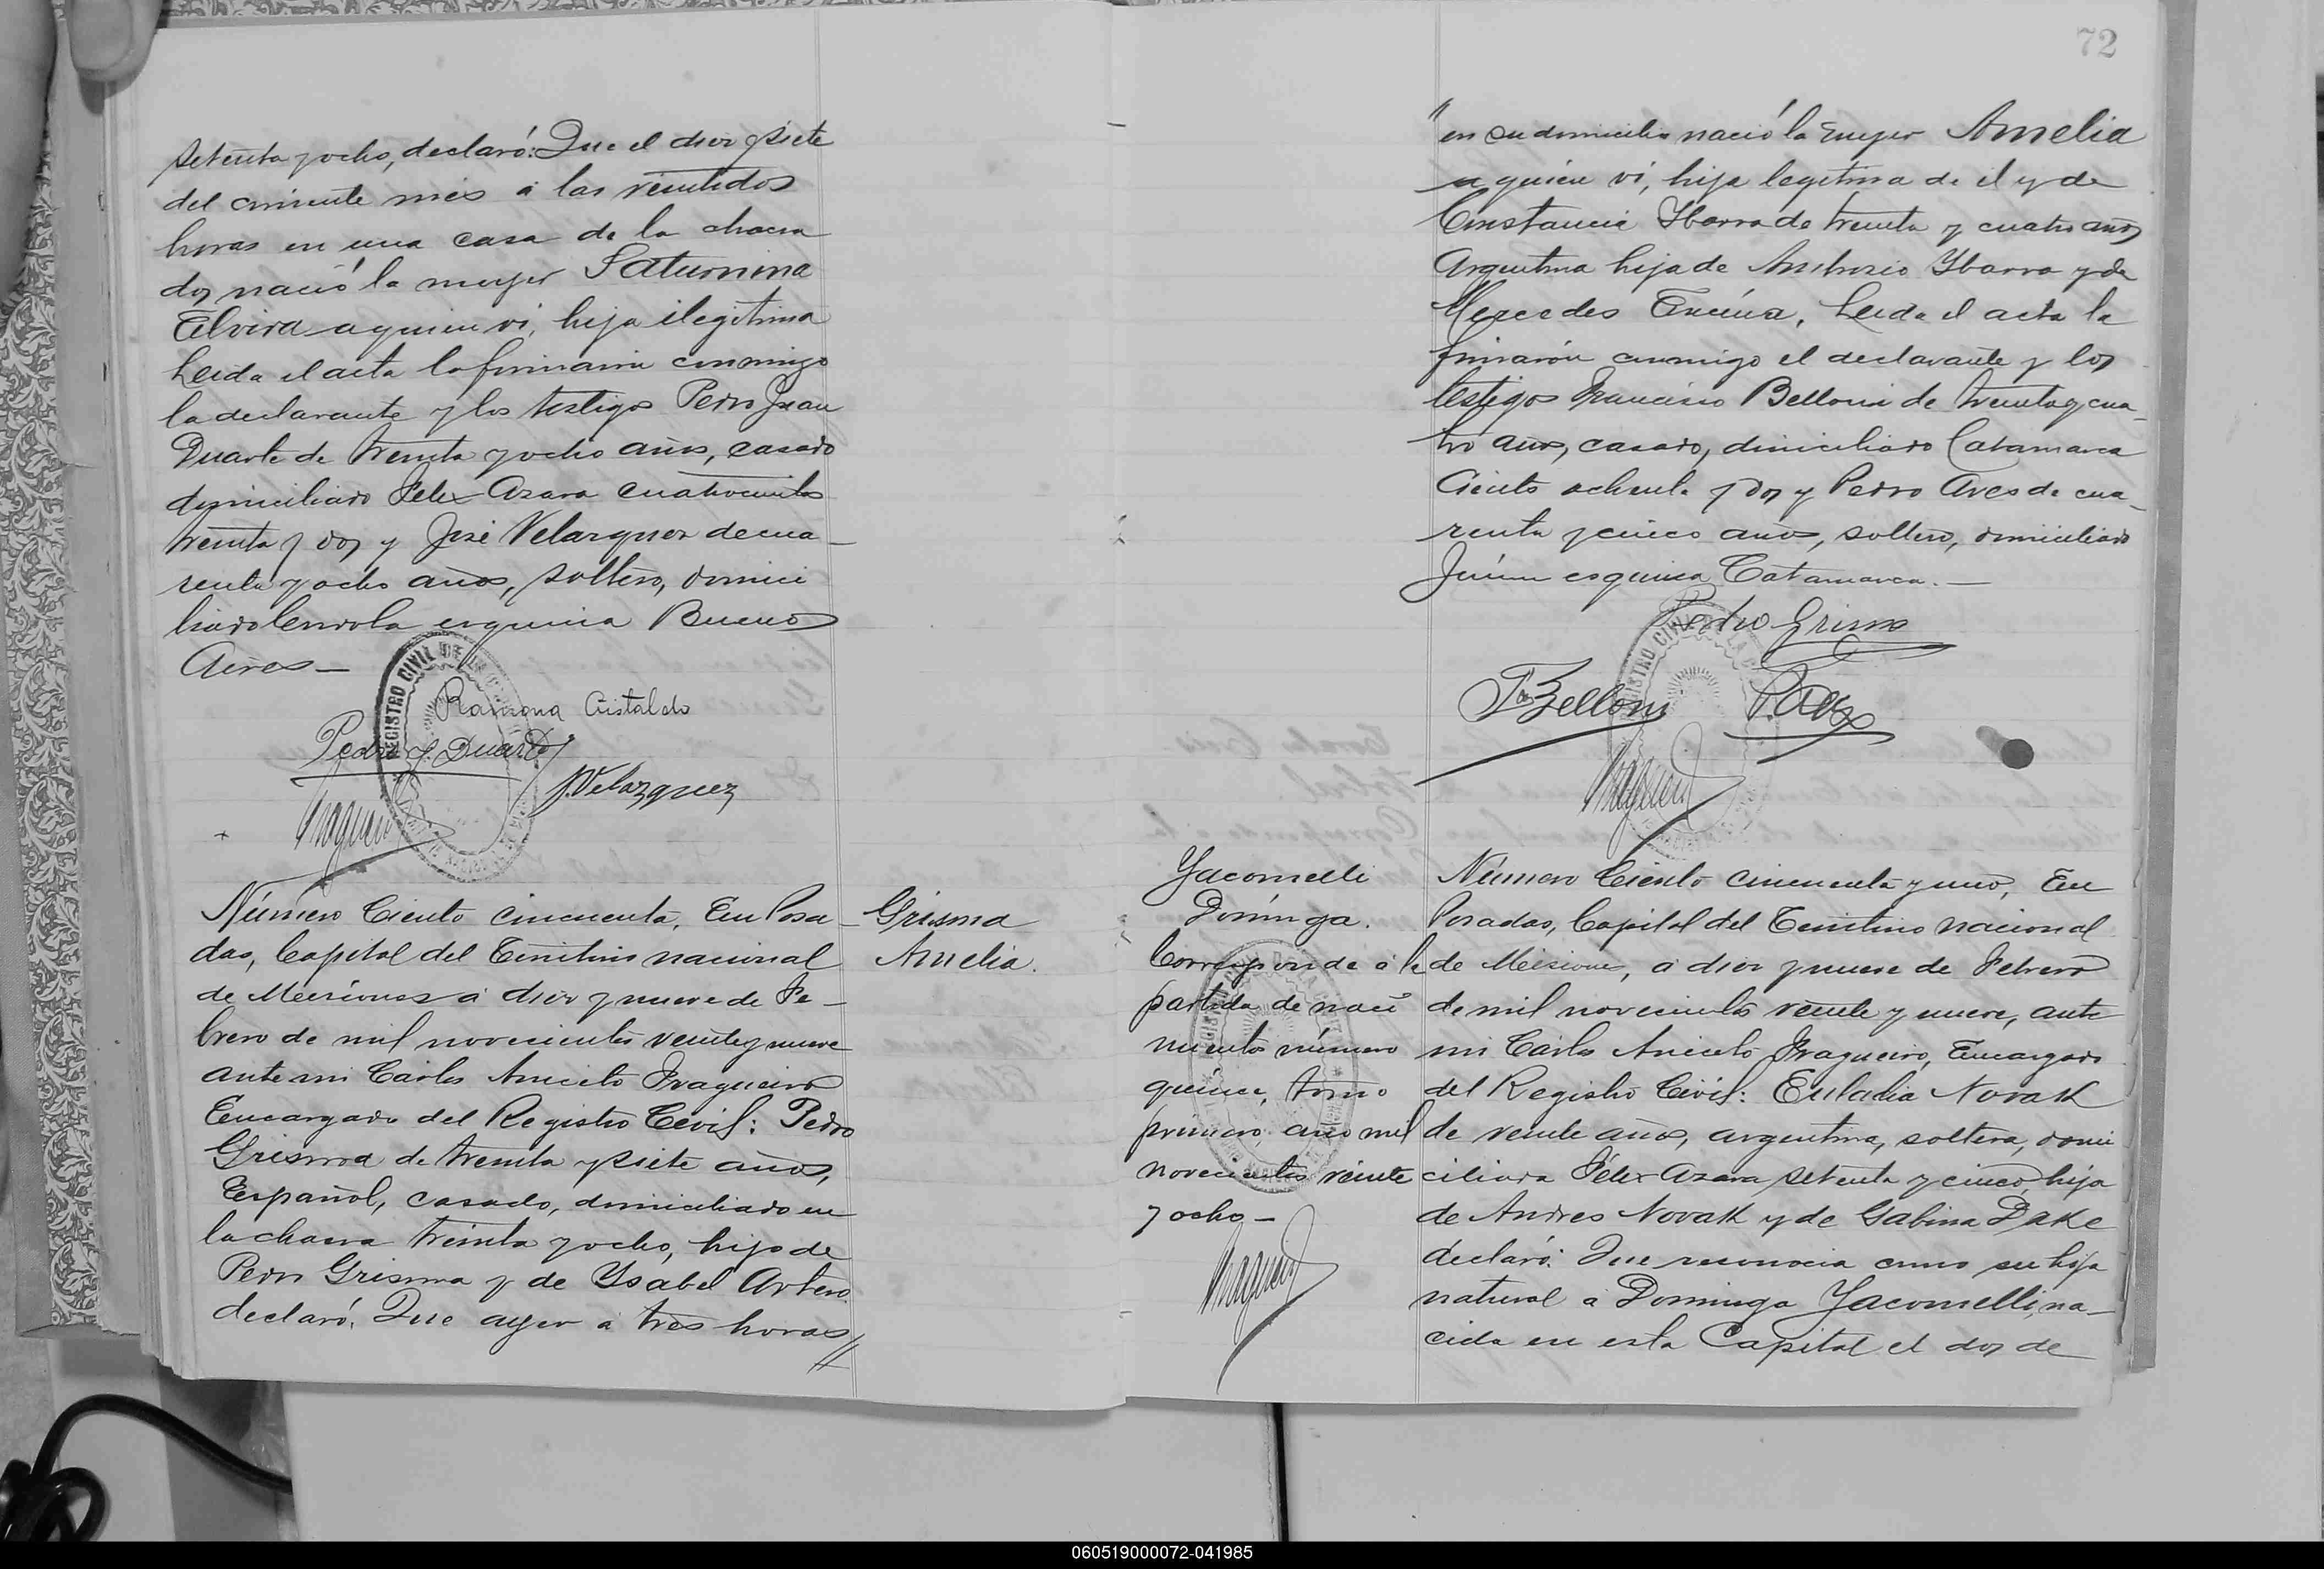 setenta y ocho, declaró: Que el diez y siete
del corriente mes á las veintidos
horas en una casa de la chacra
dos nació la mujer Saturnina
Elvira a quien vi, hija ilegitima
Leida el acta la firmaron conmigo
la declarante y los testigos Pedro Juan
Duarte de treinta y ocho años, casado
domiciliado Felix Azara cuatrocientos
treinta y dos y José Velazquez de cua-
renta y ocho años, soltero, domici
liado esquina Buenos
Aires-
REGISTRO CIVIL DE LA
Ramona Cristaldo
Pedro J. Duarte
J. Velazquez
Número Ciento cincuenta, En Posa-
das, Capital del Territorio nacional
de Misiones á diez y nueve de Fe-
brero de mil novecientos veinte y nueve
ante mi Carlos Aniceto Fragueiro
Encargado del Registro Civil: Pedro
Grisma de treinta y siete años,
Español, casado, domiciliado en
la chacra treinta y ocho, hijo de
Pedro Grisma y de Ysabel Artero
declaró: Que ayer á tres horas//
Grisma
Amelia.
72
"en su domicilio nació la mujer Amelia
a quien vi, hija legitima de él y de
Constancia Ybarra de treinta y cuatro años
Argentina hija de Ambrosio Ybarra y de
Mercedes Leida el acta la
firmaron conmigo el declarante y los
testigos Francisco Belloni de treinta y cua-
tro años, casado, domiciliado Catamarca
Ciento ochenta y dos y Pedro Aves de cua-
renta y cinco años, soltero, domiciliado
Junin esquina Catamarca.-
Pedro Grisma
F. Belloni
Yacomelli
Dominga.
Corresponde á la
partida de naci
mientos número
quince, tomo
primero año mil
novecientos veinte
y ocho-
Número Ciento cincuenta y uno, En
Posadas, Capital del Territorio nacional
de Misiones, á diez y nueve de Febrero
de mil novecientos veinte y nueve, ante
mi Carlos Aniceto Fragueiro, Encargado
del Registro Civil: Eulalia Novak
de veinte años, argentina, soltera, domi
ciliada Félix Azara setenta y cinco, hija
de Andres Novak y de Gabina Dake
declaró: Que reconocia como su hija
natural á Dominga Yacomelli, na-
cida en esta Capital el dos de
060519000072-041985